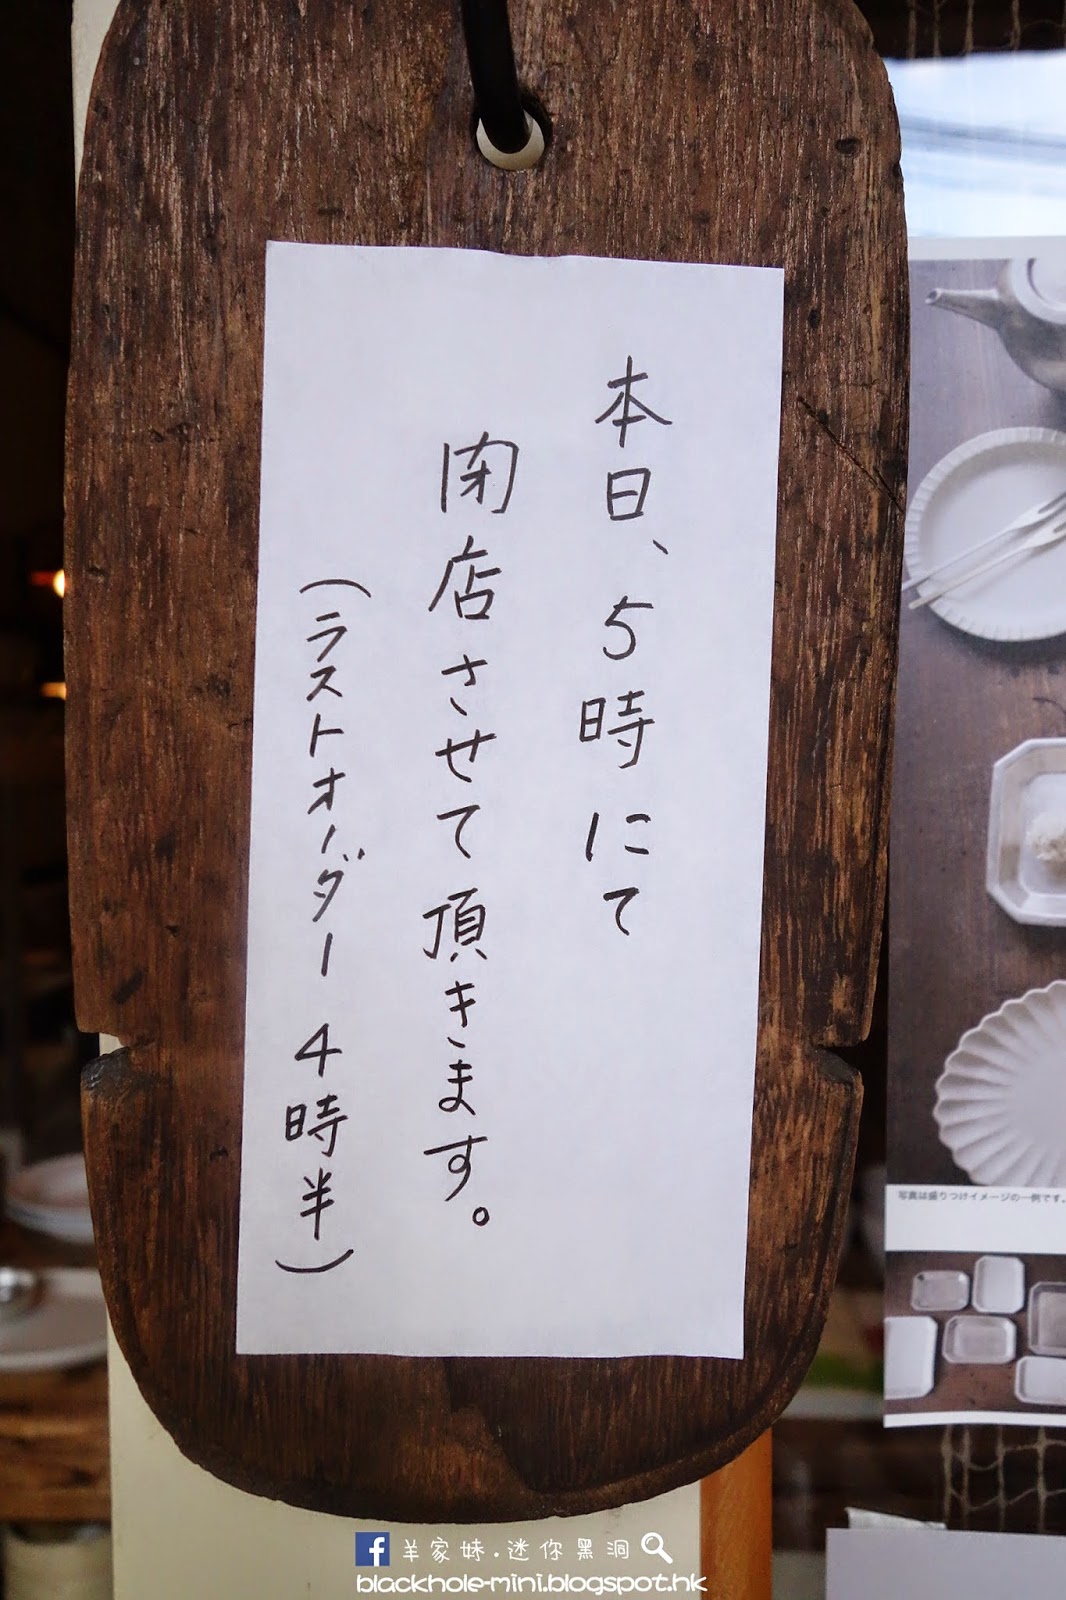 本日、5時にて
閉店させて頂きます。
(ラストオーダー 4時半)
写真は盛りつけイメージの一例です。
羊家妹.迷你黑洞
blackhole-mini.blogspot.hk